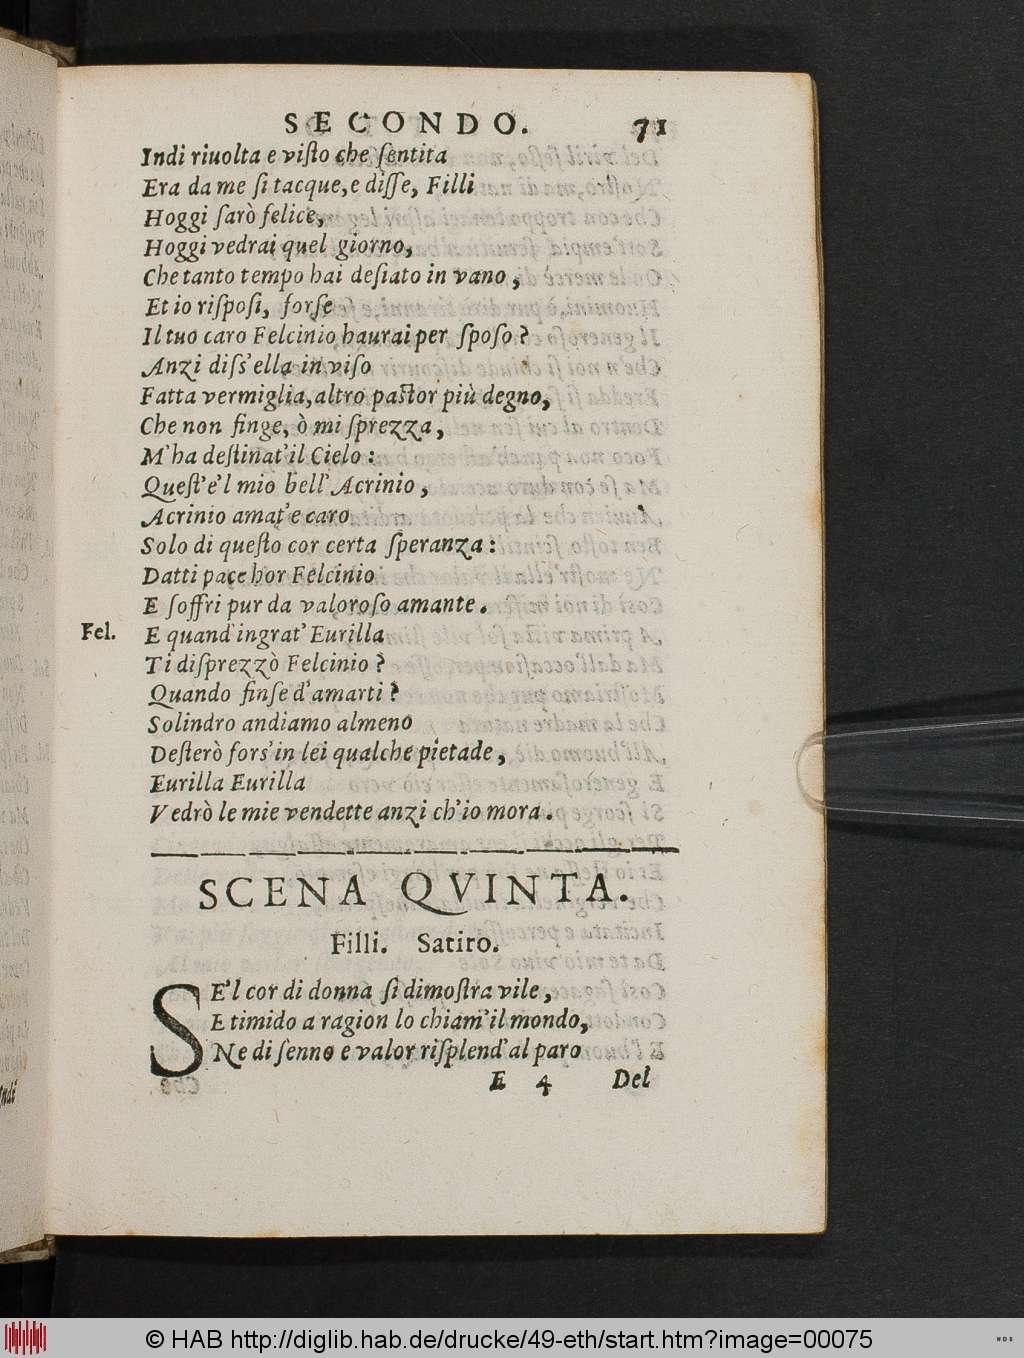 SECONDO. 71
Indi riuolta e viſto che ſentita
Era da me ſi tacque, e diſſe, Filli
Hoggi ſarò felice,
Hoggi vedrai quel giorno,
Che tanto tempo hai deſiato in vano,
Et io riſpoſi, forſe
Il tuo caro Felcinio haurai per ſpoſo?
Anzi diſs'ella in viſo
Fatta vermiglia, altro paſtor più degno,
Che non finge, ò mi ſprezza,
M'ha deſtinat'il Cielo:
Queſt'e'l mio bell'Acrinio,
Acrinio amat'e caro
Solo di queſto cor certa ſperanza:
Datti pace hor Felcinio
E ſoffri pur da valoroſo amante.
Fel. E quand'ingrat'Eurilla
Ti diſprezzò Felcinio?
Quando finſe d'amarti?
Solindro andiamo almeno
Deſterò forſ'in lei qualche pietade,
Eurilla Eurilla
Vedrò le mie vendette anzi ch'io mora.
SCENA QVINTA.
Filli. Satiro.
SE'l cor di donna ſi dimoſtra vile,
E timido a ragion lo chiam'il mondo,
Ne di ſenno e valor riſplend'al paro
E 4 Del
© HAB http://diglib.hab.de/drucke/49-eth/start.htm?image=00075